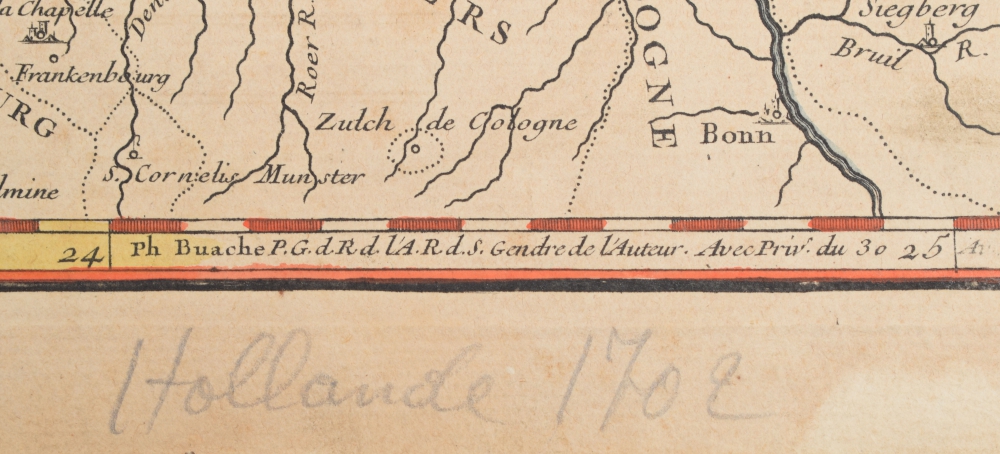 la Chapelle
Siegberg
Roer R.
ERS
OGNE
Bruil R.
Frankenbourg
URG
Zulch de Cologne
Bonn
S. Cornelis Munster
lmine
24 Ph Buache P.G.d.R.d.l'A.R.d.S. Gendre de l'Auteur. Avec Privˢ. du 30 25
Hollande 1702